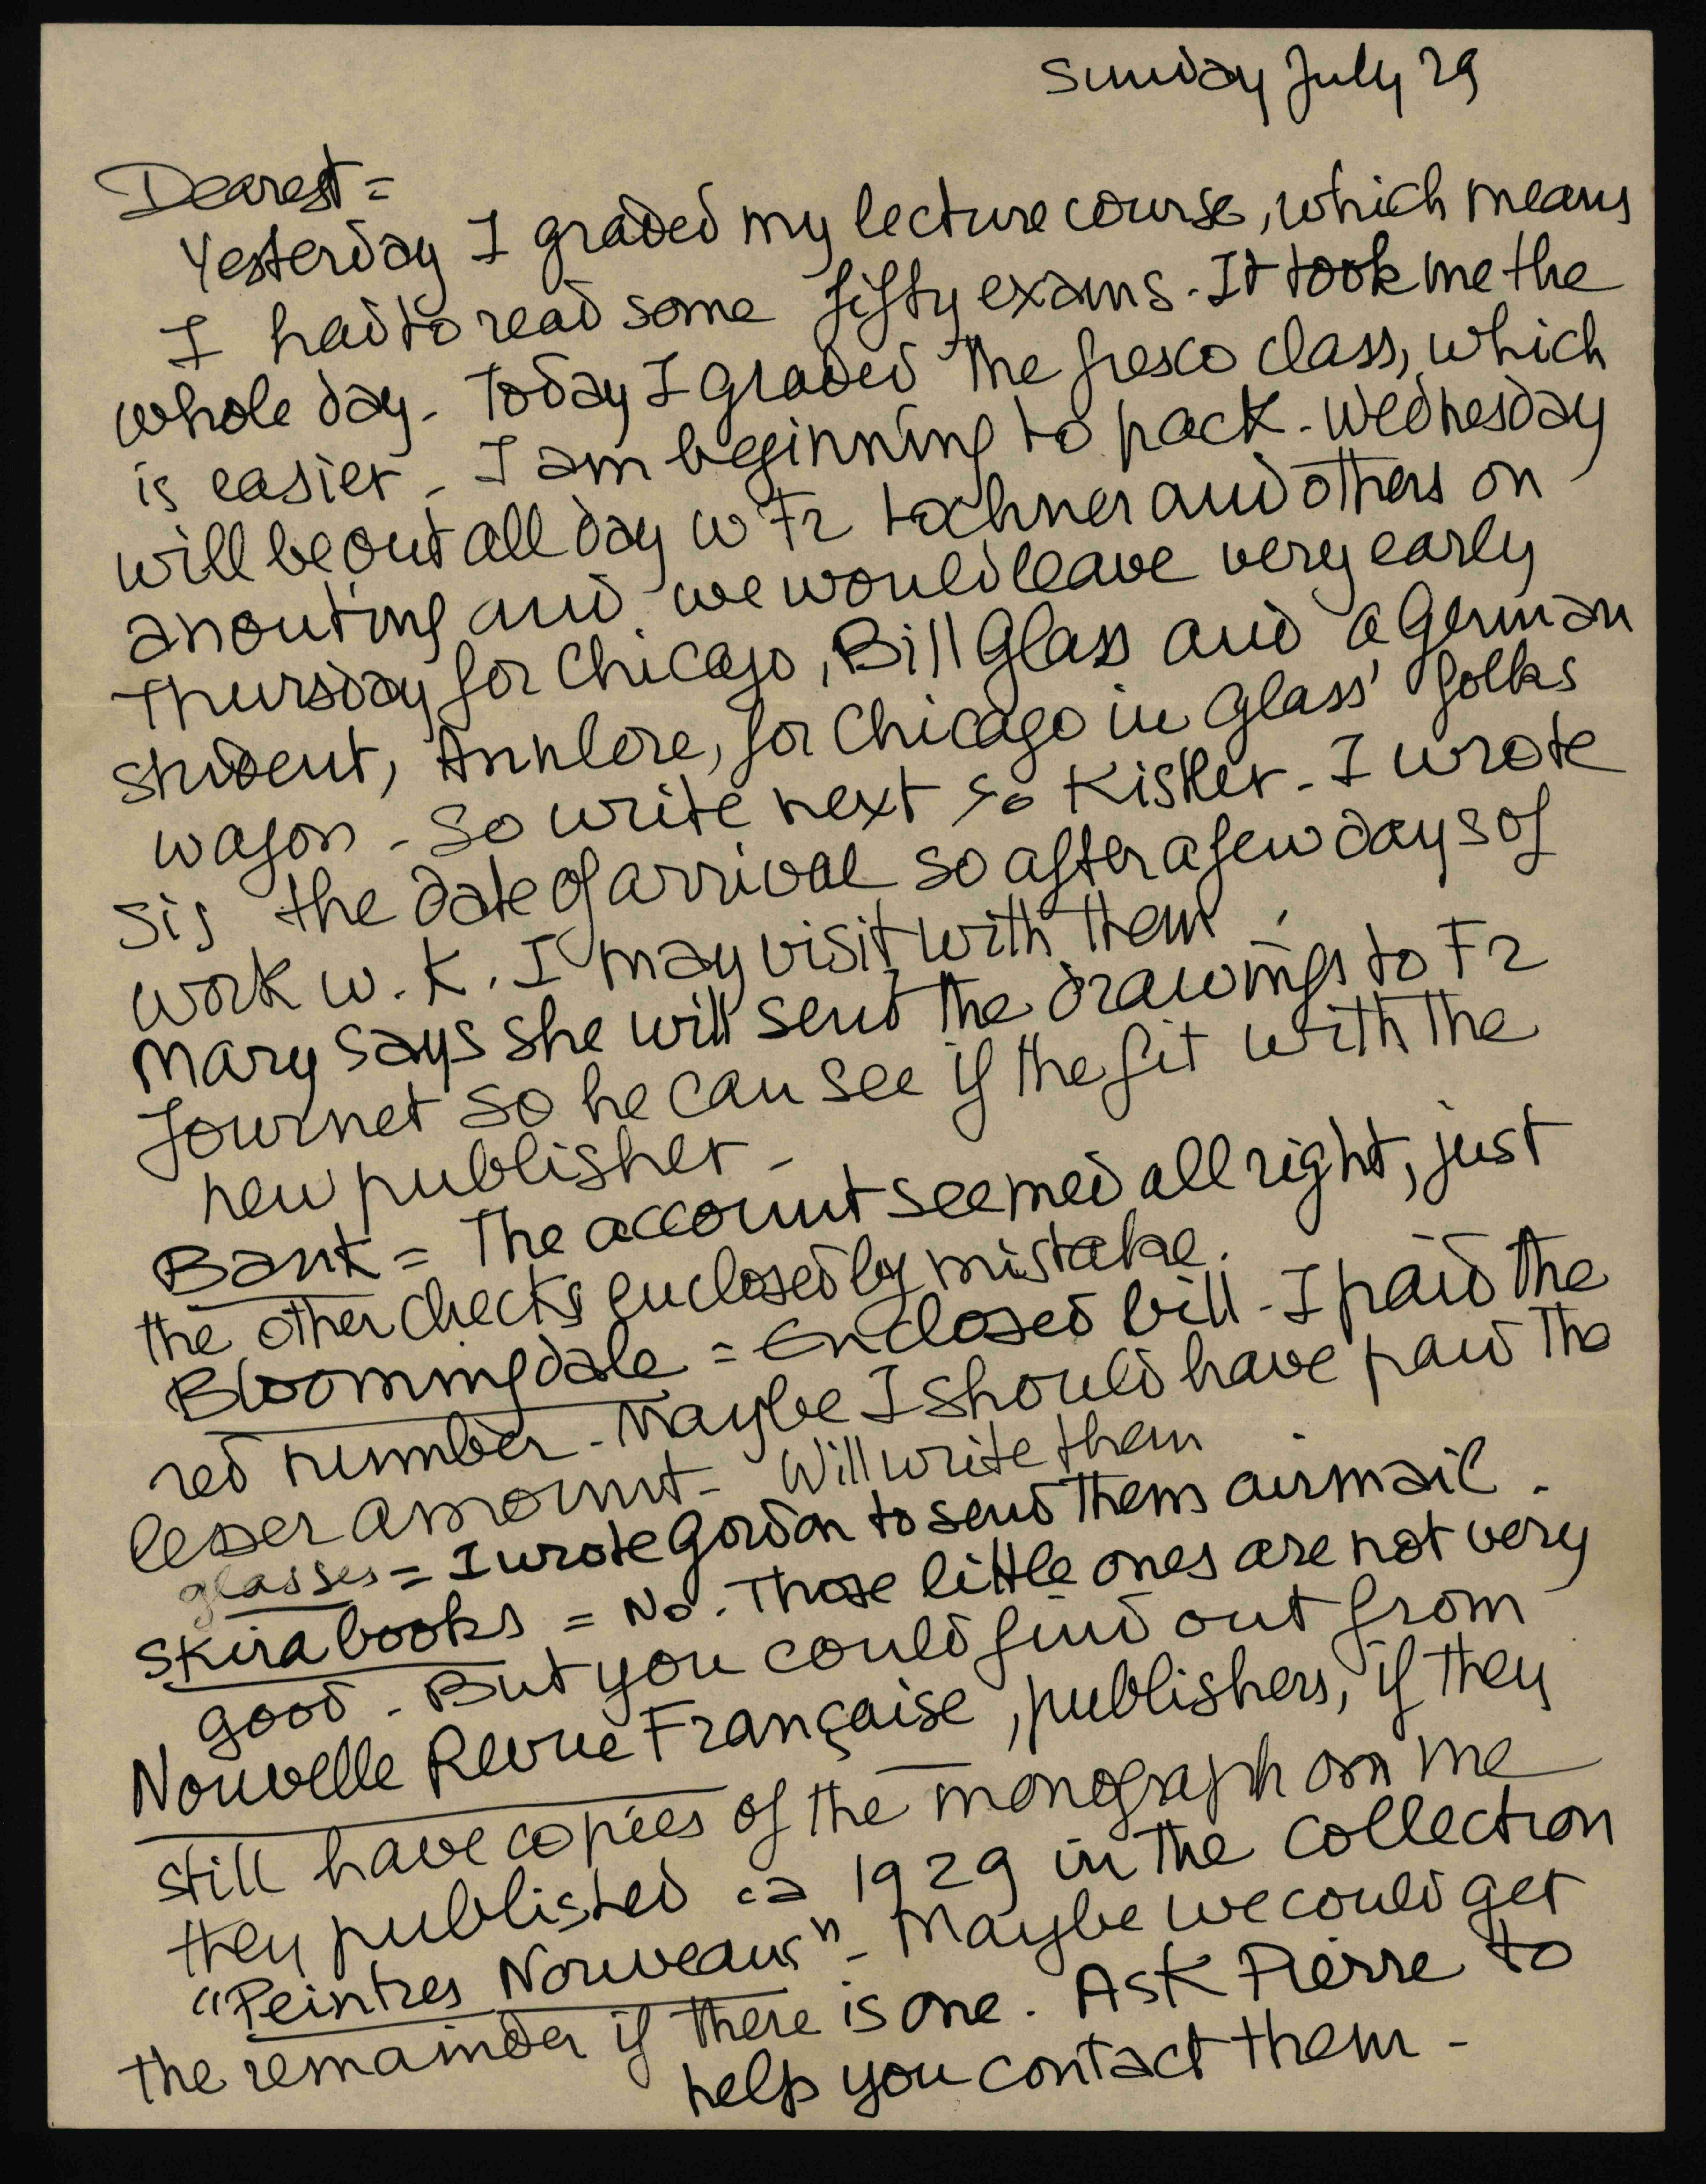 Sunday July 29
Dearest =
Yesterday I graded my lecture course, which means
I had to read some fifty exams. It took me the
whole day. Today I graded the fresco class, which
is easier. I am beginning to pack. Wednesday
will be out all day w Fr and others on
an outing and we would leave very early
Thursday for Chicago, Bill Glass and a German
student, Annlore, for Chicago in Glass' folks
wagon. So write next to Kistler. I wrote
Sis the date of arrival so after a few days of
work w. K. I may visit with them
Mary says she will send the drawings to Fr
Journet so he can see if the fit with the
new publisher -
Bank = The account seemed all right, just
the other checks enclosed by mistake.
Bloomingdale = Enclosed bill - I paid the
red number. Maybe I should have paid the
lesser amount - Will write them
glasses = I wrote Gordon to send them airmail.
Skira books = No. Those little ones are not very
good. But you could find out from
Nouvelle Revue Française, publishers, if they
still have copies of the monograph on me
they published ca 1929 in the collection
"Peintres Nouveaux" - Maybe we could get
the remainder if there is one. Ask Pierre to
help you contact them -